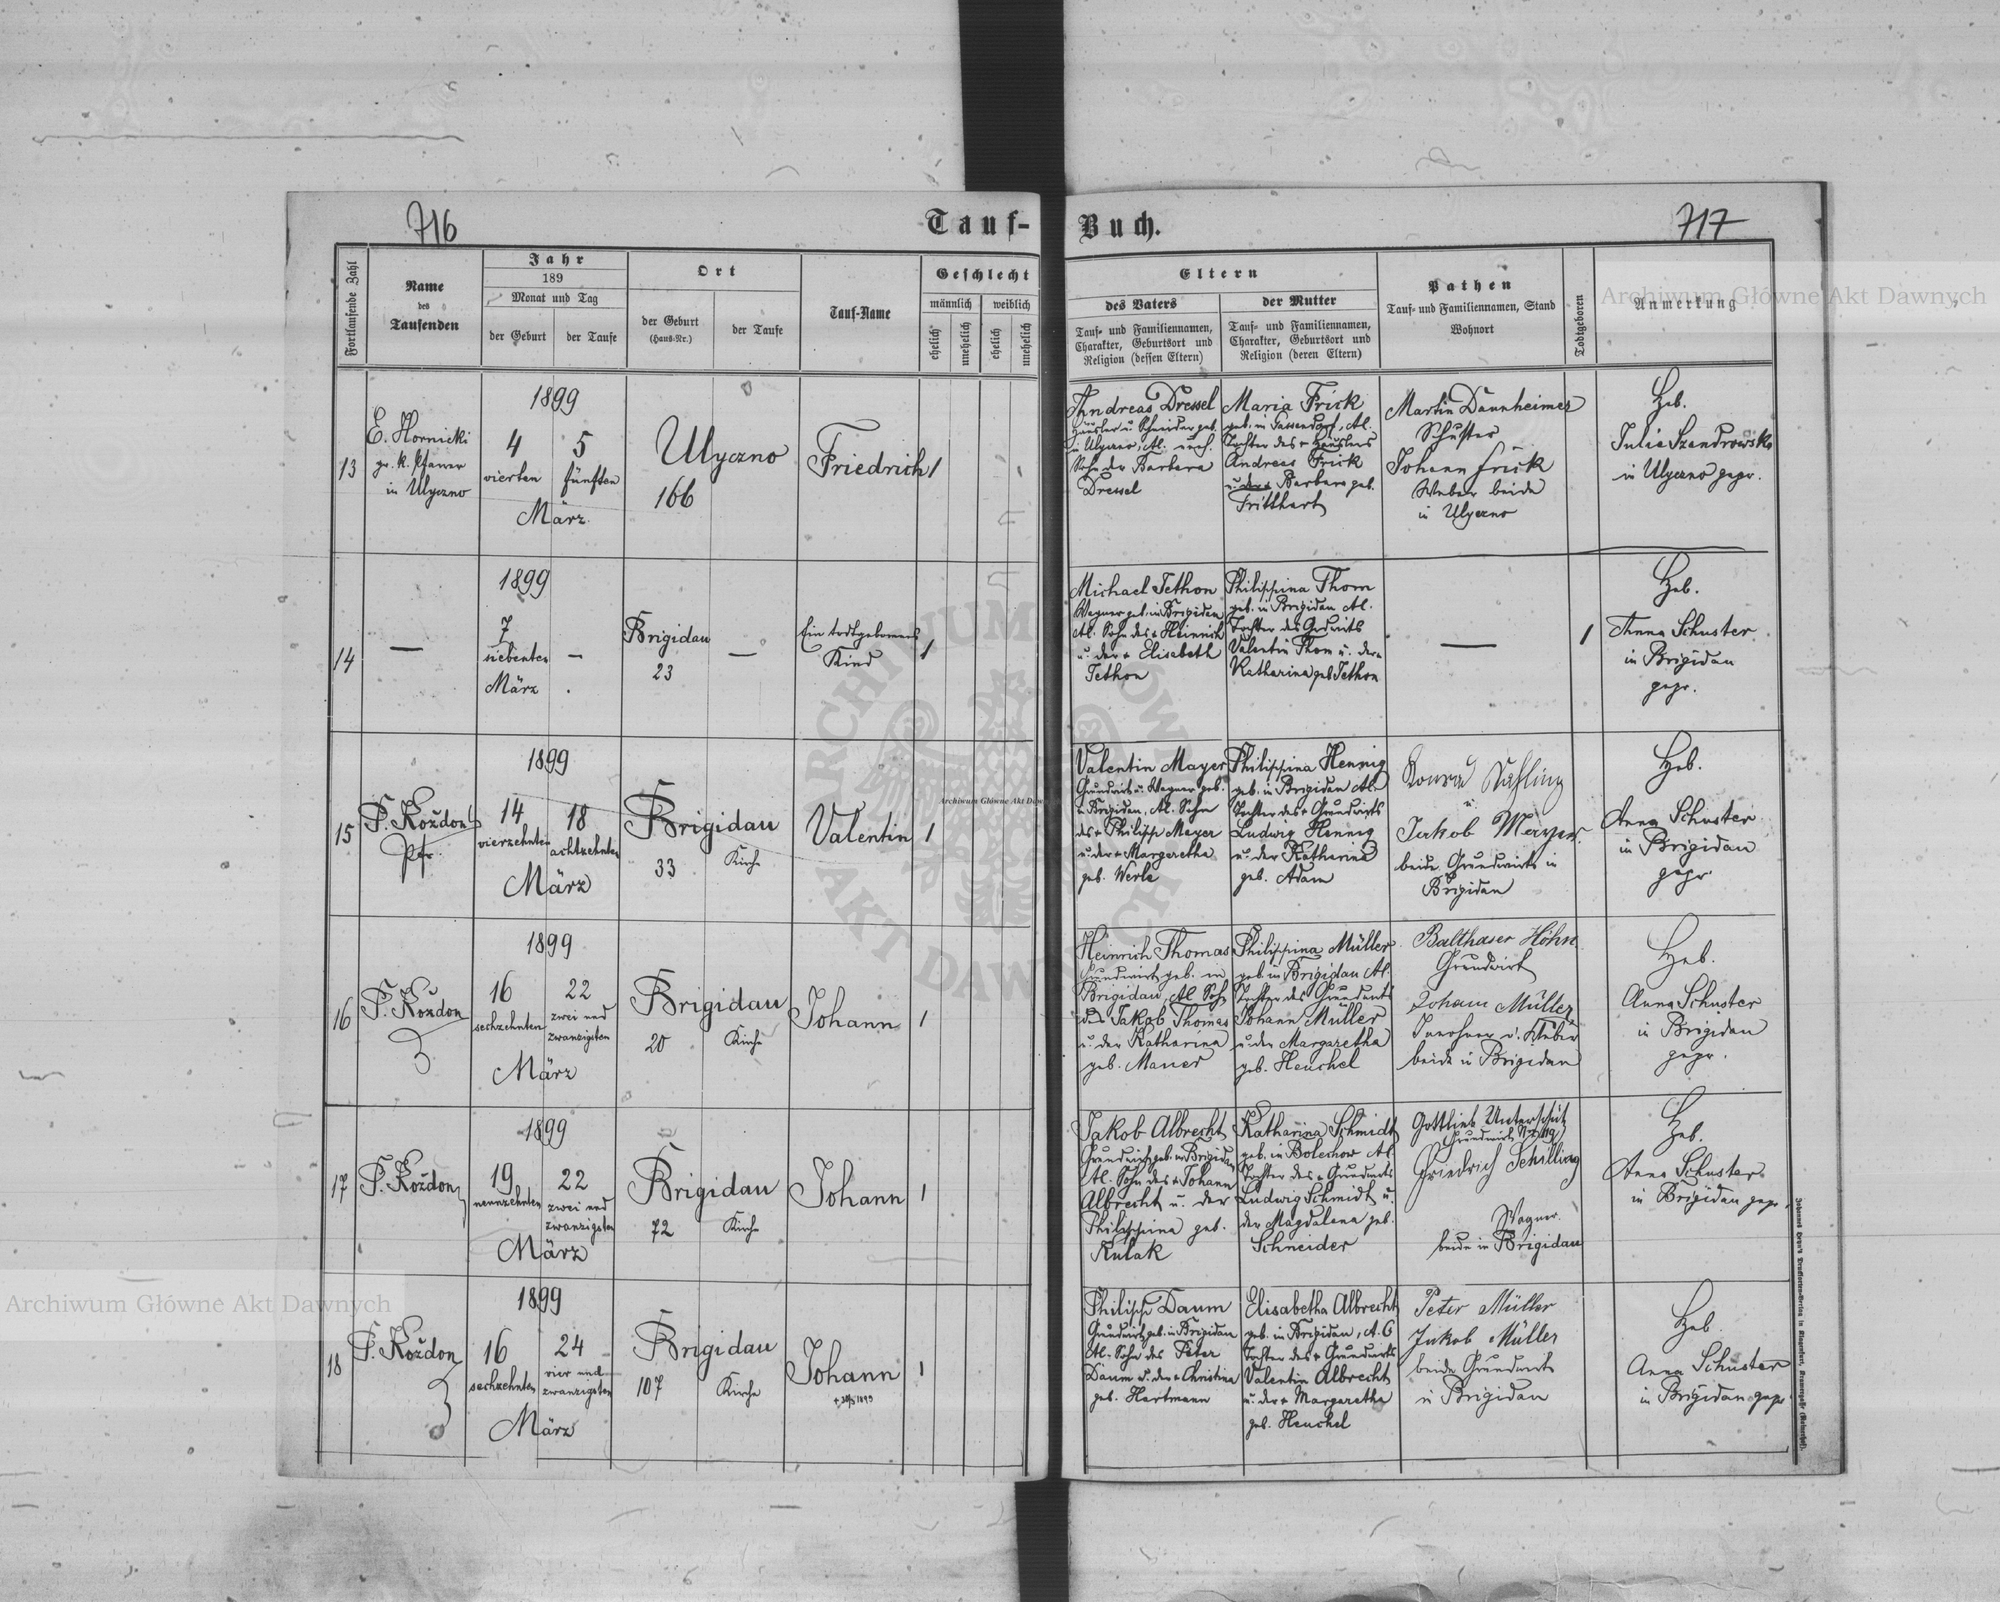 716
Tauf-
Buch.
717
Fortlaufende Zahl
Name
des
Taufenden
Jahr
189
Monat und Tag
der Geburt
der Taufe
Ort
der Geburt
(Haus-Nr.)
der Taufe
Tauf-Name
Geschlecht
männlich
weiblich
ehelich
unehelich
ehelich
unehelich
Eltern
des Vaters
Tauf- und Familiennamen,
Charakter, Geburtsort und
Religion (dessen Eltern)
der Mutter
Tauf- und Familiennamen,
Charakter, Geburtsort und
Religion (deren Eltern)
Pathen
Tauf- und Familiennamen, Stand
Wohnort
Todtgeboren
Anmerkung
13
E. Hornicki
gr. k. Pfarrer
in Ulyczno
1899
4
vierten
5
fünften
März
Ulyczno
166
Friedrich
1
Andreas Dressel
Häusler u. Schneider geb.
in Ulyczno, Al. uneh.
Sohn der Barbara
Dressel
Maria Frick
geb. in Sassendorf, Al.
Tochter des + Häuslers
Andreas Frick
u. der + Barbara geb.
Tritthart
Martin Dannheimer
Schuster
Johann Frick
Weber beide
in Ulyczno
Heb.
Julie Szandrowska
in Ulyczno gepr.
14
—
1899
7
siebenten
März
—
Brigidau
23
—
Ein todtgeborenes
Kind
1
Michael Jethon
Wagner geb. in Brigidau
Al. Sohn des + Heinrich
u. der + Elisabeth
Jethon
Philippina Thom
geb. in Brigidau Al.
Tochter des Grdwirts
Valentin Thom u. der
Katharina geb Jethon
—
1
Heb.
Anna Schuster
in Brigidau
gepr.
15
F. Koždon
Pfr.
1899
14
vierzehnten
18
achtzehnten
März
Brigidau
33
Kirche
Valentin
1
Valentin Mayer
Grundwirt u. Wagner geb.
in Brigidau, Al. Sohn
des + Philipp Mayer
u. der + Margaretha
geb. Werle
Philippina Hennig
geb. in Brigidau Al.
Tochter des + Grundwirts
Ludwig Hennig
u. der Katharina
geb. Adam
Konrad
u.
Jakob Mayer
beide Grundwirte in
Brigidau
Heb.
Anna Schuster
in Brigidau
gepr
16
F. Koždon
1899
16
sechzehnten
22
zwei und
zwanzigsten
März
Brigidau
20
Kirche
Johann
1
Heinrich Thomas
Grundwirt geb. in
Brigidau Al Sohn
des Jakob Thomas
u. der Katharina
geb. Mauer
Philippina Müller
geb. in Brigidau Al.
Tochter des Grundwirts
Johann Müller
u. der Margaretha
geb. Heuchel
Balthaser Höhn
Grundwirt
Johann Müller
beide in Brigidau
Heb.
Anna Schuster
in Brigidau
gepr.
17
F. Koždon
1899
19
neunzehnten
22
zwei und
zwanzigsten
März
Brigidau
72
Kirche
Johann
1
Jakob Albrecht
Grundwirt geb. in Brigidau
Al. Sohn des + Johann
Albrecht u. der
Philippina geb.
Kulak
Katharina Schmidt
geb. in Bolechow Al.
Tochter des + Grundwirts
Ludwig Schmidt u.
der Magdalena geb.
Schneider
Gottlieb Unterschütz
Grundwirt N. 119
Friedrich Schilling
Wagner
beide in Brigidau
Heb.
Anna Schuster
in Brigidau gepr.
18
F. Koždon
1899
16
sechzehnten
24
vier und
zwanzigsten
März
Brigidau
107
Kirche
Johann
1
Philipp Daum
Grundwirt geb. in Brigidau
Al. Sohn des Peter
Daum u. der + Christina
geb. Hartmann
Elisabetha Albrecht
geb. in Brigidau, A. C
Tochter des + Grundwirts
Valentin Albrecht
u. der + Margaretha
geb. Heuchel
Peter Müller
Jakob Müller
beide Grundwirte
in Brigidau
Heb.
Anna Schuster
in Brigidau gepr
Archiwum Główne Akt Dawnych
Archiwum Główne Akt Dawnych
Archiwum Główne Akt Dawnych
ARCHIWUM GŁÓWNE
AKT DAWNYCH